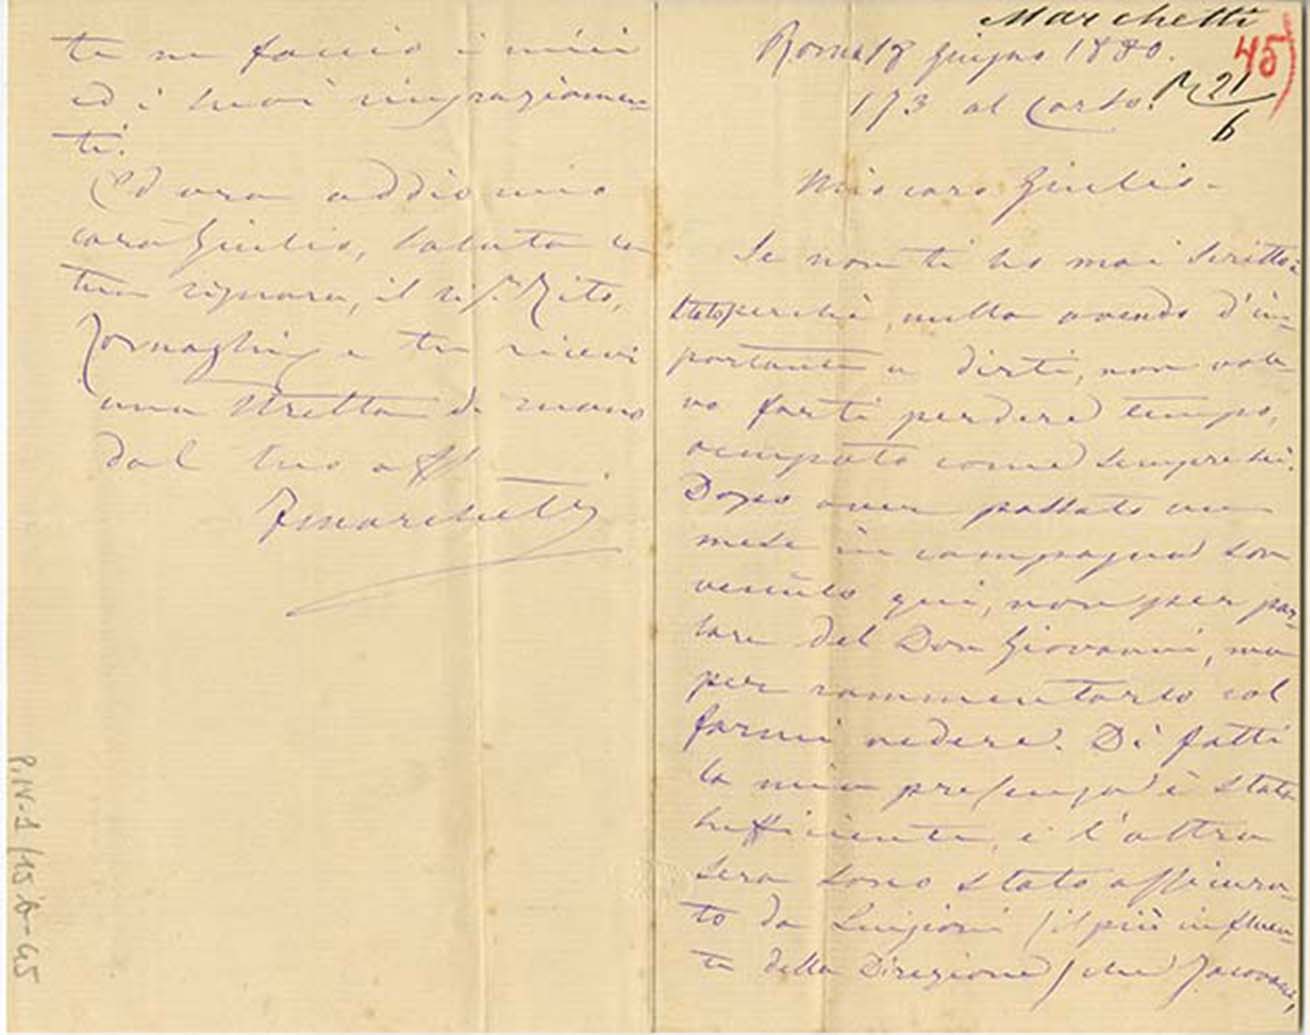 Marchetti
45)
Roma 18 Giugno 1880.
173 al Corso.
R 21/6
Mio caro Giulio -
Se non ti ho mai scritto è
stato perchè, nulla avendo d'im-
portante a dirti, non vole-
vo farti perdere tempo,
occupato come sempre sei.
Dopo aver passato un
mese in campagna son
venuto qui, non per par-
lare del Don Giovanni, ma
per rammentarlo col
farmi vedere. Di fatti
la mia presenza è stata
sufficiente, e l'altra
sera sono stato assicura-
to da (il più influen-
te della Direzione) che Jacovacci,
te ne faccio i miei
ed i tuoi ringraziamen-
ti.
Ed ora addio mio
caro Giulio, saluta la
tua signora, il Sig.r Tito,
Tornaghi, e tu ricevi
una stretta di mano
dal tuo aff
FMarchetti
P.IV-1/15 b-45